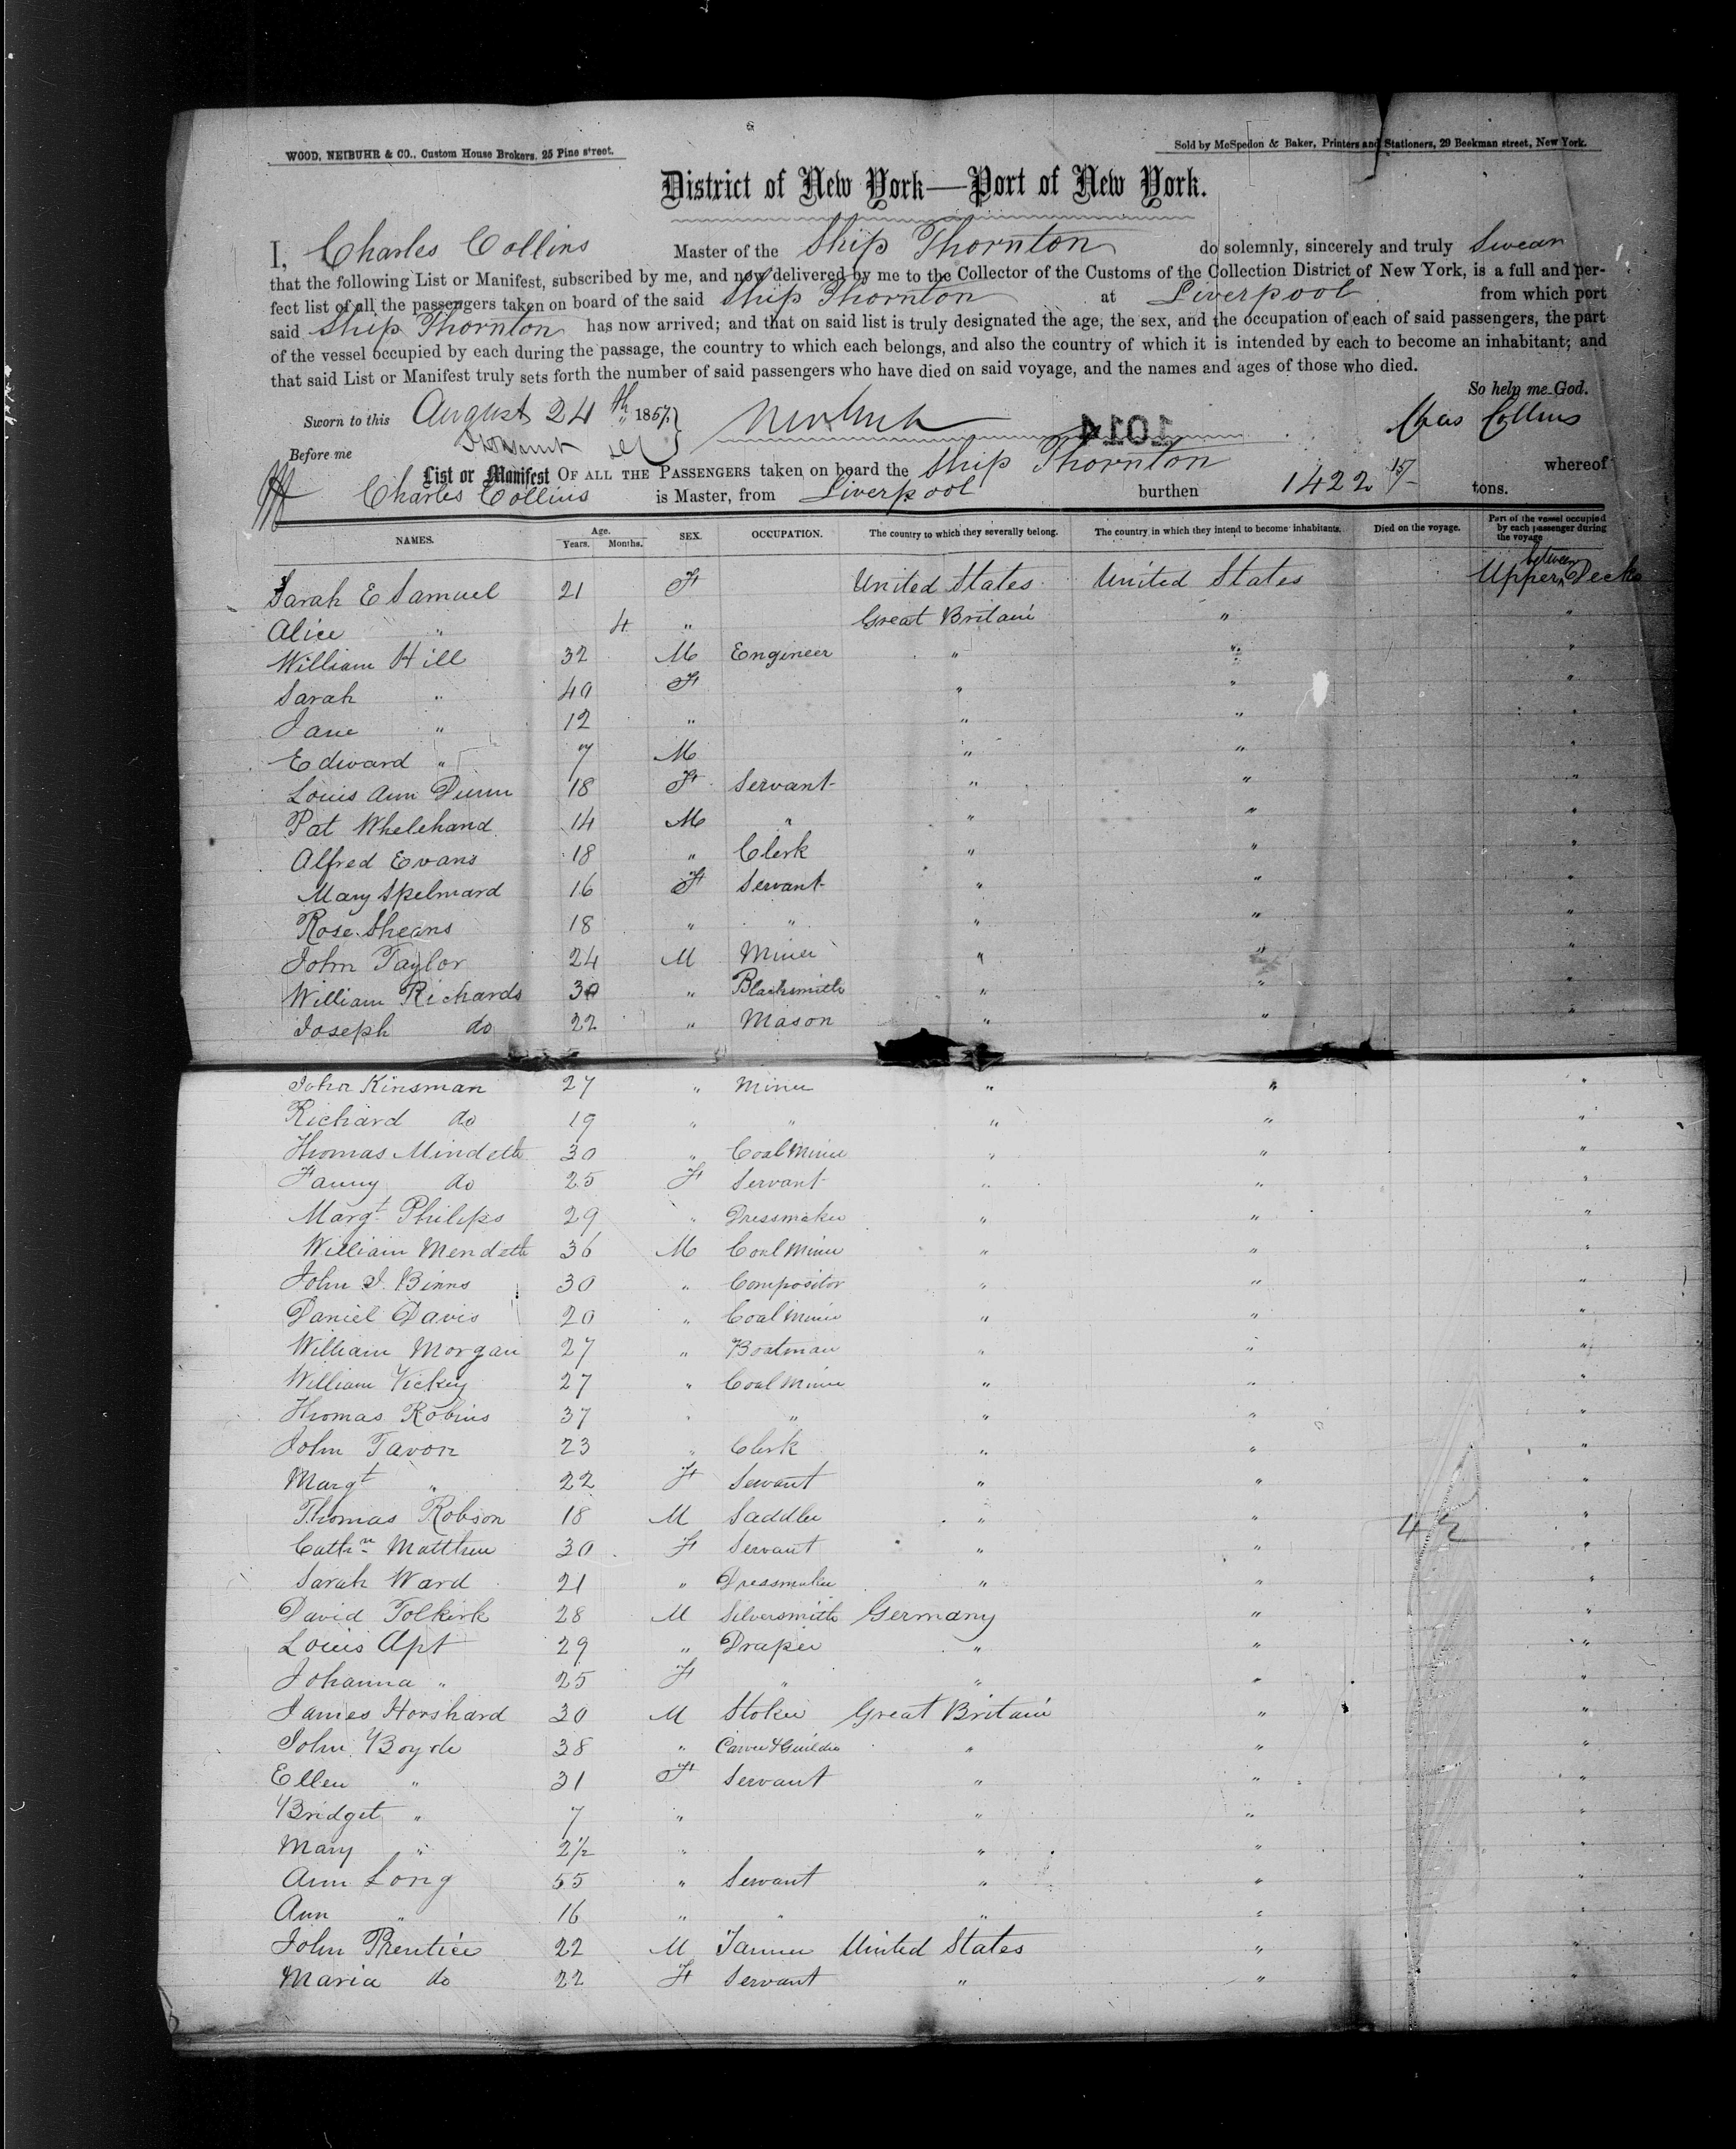 WOOD, NEIBUHR & CO., Custom House Brokers, 25 Pine street.
Sold by McSpedon & Baker, Printers and Stationers, 29 Beekman street, New York.
District of New York—Port of New York.
I, Charles Collins Master of the Ship Thornton do solemnly, sincerely and truly Swear
that the following List or Manifest, subscribed by me, and now delivered by me to the Collector of the Customs of the Collection District of New York, is a full and per-
fect list of all the passengers taken on board of the said Ship Thornton at Liverpool from which port
said Ship Thornton has now arrived; and that on said list is truly designated the age, the sex, and the occupation of each of said passengers, the part
of the vessel occupied by each during the passage, the country to which each belongs, and also the country of which it is intended by each to become an inhabitant; and
that said List or Manifest truly sets forth the number of said passengers who have died on said voyage, and the names and ages of those who died.
So help me God.
Sworn to this August 24th 1857. 1014 Chas Collins
Before me
List or Manifest OF ALL THE PASSENGERS taken on board the Ship Thornton whereof
Charles Collins is Master, from Liverpool burthen 1422 15/ tons.
NAMES. Age. Years. Months. SEX. OCCUPATION. The country to which they severally belong. The country in which they intend to become inhabitants. Died on the voyage. Part of the vessel occupied by each passenger during the voyage
Sarah E Samuel 21 F United States United States Upper between Decks
Alice " 4 " Great Britain " "
William Hill 32 M Engineer " " "
Sarah " 40 F " " "
Jane " 12 " " " "
Edward " 7 M " " "
Louis Ann Dunn 18 F Servant " " "
Pat Whelehand 14 M " " " "
Alfred Evans 18 " Clerk " " "
Mary Spelmard 16 F Servant " " "
Rose Sheans 18 " " " " "
John Taylor 24 M Miner " " "
William Richards 30 " Blacksmith " " "
Joseph do 22 " Mason " " "
John Kinsman 27 " Miner " " "
Richard do 19 " " " " "
Thomas Mindeth 30 " Coal Miner " " "
Fanny do 25 F Servant " " "
Margt Philips 29 " Dressmaker " " "
William Mendeth 36 M Coal Miner " " "
John J. Binns 30 " Compositor " " "
Daniel Davis 20 " Coal Miner " " "
William Morgan 27 " Boatman " " "
William Vickey 27 " Coal Miner " " "
Thomas Robins 37 " " " " "
John Tavon 23 " Clerk " " "
Margt " 22 F Servant " " "
Thomas Robson 18 M Saddler " " 42 "
Cathn Matthew 30 F Servant " " "
Sarah Ward 21 " Dressmaker " " "
David Tolkirk 28 M Silversmith Germany " "
Louis Apt 29 " Draper " " "
Johanna " 25 F " " " "
James Horshard 30 M Stoker Great Britain " "
John Boyde 38 " Carver & Guilder " " "
Ellen " 31 F Servant " " "
Bridget " 7 " " " "
Mary " 2½ " " " "
Ann Long 55 " Servant " " "
Ann " 16 " " " " "
John Prentice 22 M Farmer United States " "
Maria do 22 F Servant " " "